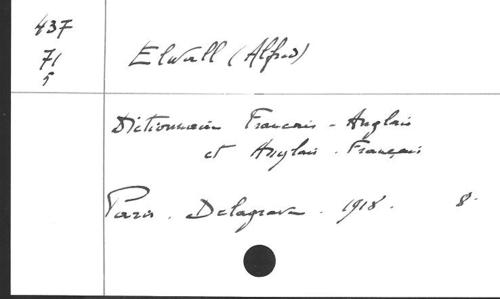 437
71
5
Elwall (Alfred)
Dictionnaire Français - Anglais
et Anglais - Français
Paris. Delagrave. 1918. 8.